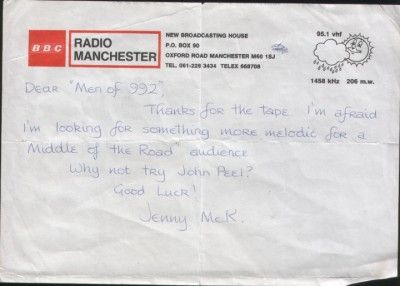 BBC
RADIO
MANCHESTER
NEW BROADCASTING HOUSE
P.O. BOX 90
OXFORD ROAD MANCHESTER M60 1SJ
TEL. 061-228 3434 TELEX 668708
95.1 vhf
1458 kHz 206 m.w.
Dear "Men of 992",
Thanks for the tape. I'm afraid
I'm looking for something more melodic for a
Middle of the Road" audience
Why not try John Peel?
Good Luck!
Jenny McK.